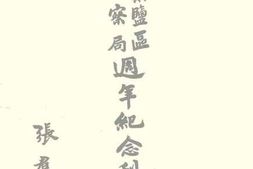 鹽區
察局
週年紀念刊
張